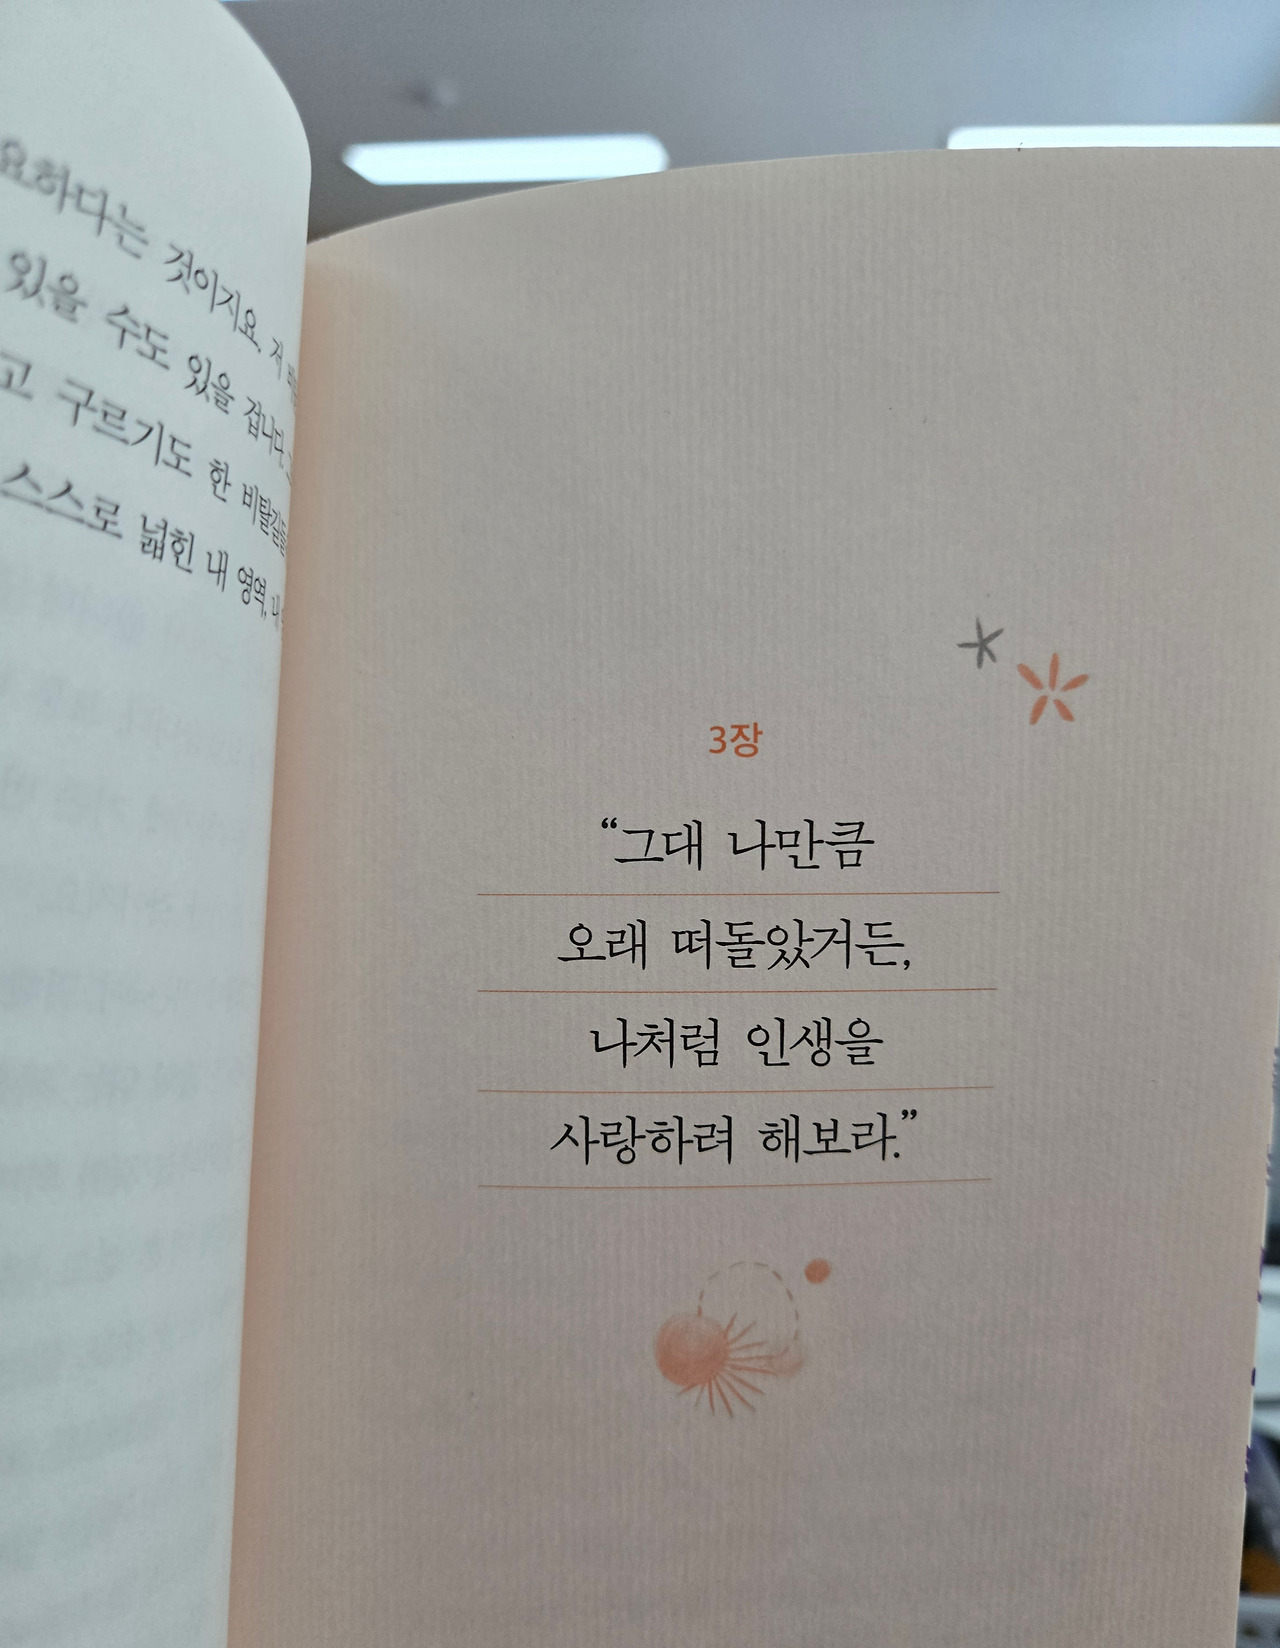 요하다는 것이지요. 저
있을 수도 있을 겁니다.
고 구르기도 한 비탈길들
스스로 넓힌 내 영역, 내
3장
“그대 나만큼
오래 떠돌았거든,
나처럼 인생을
사랑하려 해보라.”